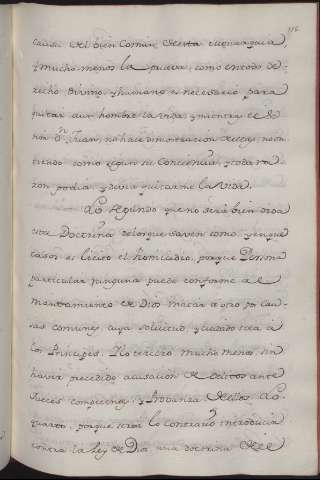 causa del bien Comun de esta
y mucho menos la prueva, como en todo de-
recho Divino, y humano es necesario para
quitar a un hombre la vida, y mientras el Se-
ñor Dn. Juan, no hace demostracion de ellas, no en-
tiendo como segun su Conciencia, y toda ra-
zon podia, y devia quitarme la vida.
Lo segundo que no será bien oida
esta Doctrina de los que saven como, y en que
casos es licito el homicidio, porque Persona
particular ninguna puede conforme a el
mandamiento de Dios matar a otro por cau-
sas comunes cuya solicitud, y cuidado toca á
los Principes. Lo tercero mucho menos, sin
haver precedido acusacion de delitos ante
Jueces competentes, y Probanza de ellos. Lo
quarto, porque seria lo contrario introducir
contra la Ley de Dios una doctrina de